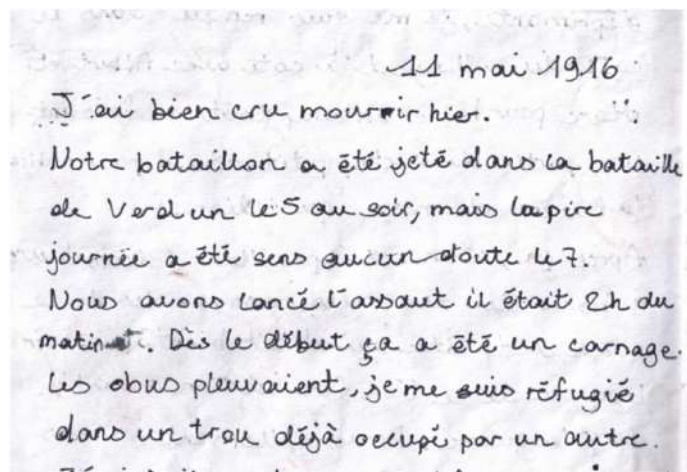 11 mai 1916
J'ai bien cru mourrir hier.
Notre bataillon a été jeté dans la bataille
de Verdun le 5 au soir, mais la pire
journée a été sens aucun doute le 7.
Nous avons lancé l'assaut il était 2h du
matin. Dès le début ça a été un carnage.
Les obus pleuvaient, je me suis réfugié
dans un trou déjà occupé par un autre.